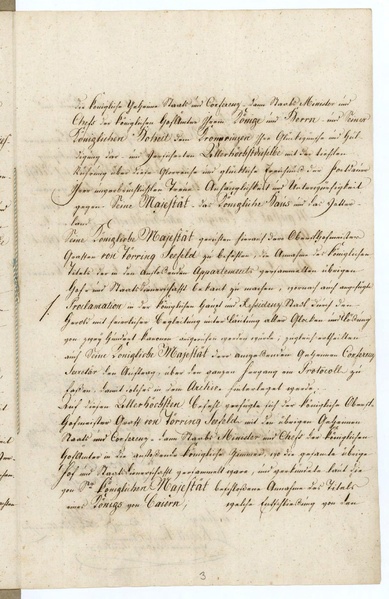 die königliche Geheime Staats und Conferenz, dann Staats Minister und
Chefs der königlichen Hofämter Ihrem Könige und Herrn, und Seiner
Königlichen Hoheit dem Kronprinzen Ihre Glückwünsche und Hul
digung dar, und versicherten Allerhöchstdieselbe mit der tiefsten
Rührung über diese Ehrenvolle und glückliche Ereigniß der
Ihrer unverbrüchlichen Treue, Anhänglichkeit und Unterwürfigkeit
gegen Seine Majestät, das Königliche Haus und das Vatter-
land.
Seine Königliche Majestät geruhten hierauf dem Obersthofmeister
Grafen von Törring Seefeld zu befehlen, die Annahme des königlichen
Titels der in den anstoßenden Appartements versammelten übrigen
Hof und Staats Dienerschaft bekant zu machen, wonach auch sogleich
Proclamation in der königlichen Haupt und Residenz Stadt durch den
Herold mit feierlicher Begleitung unter Läutung aller Glocken und Lösung
von zwey Hundert Kanonen ausgerufen werden würde, zugleich erhielten
auch Seine Königliche Majestät dem Geheimen Conferenz
Secretär den Auftrag, über den ganzen Hergang ein Protocoll zu
fassen, damit solches in dem Archive hinterleget werde.
Auf diesen Allerhöchsten Befehl verfügte sich der königliche Oberst-
hofmeister Graf von Törring Seefeld mit den übrigen Geheimen
Staats und Conferenz, dann Staats Minister und Chefs der königlichen
Hofämter in die anstoßende königliche Zimmer, wo die gesamte übrige
Hof und Staats Dienerschaft versammelt ware, und verkündete laut die
von Sr Königlichen Majestät beschlossene Annahme des Titels
eines Königs von Baiern, welche Entschließung von den
3